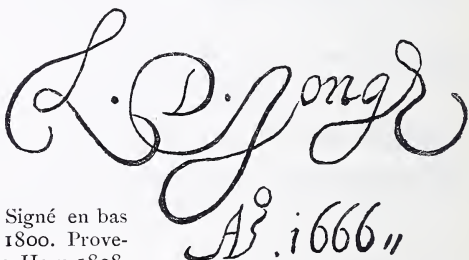 L. D. Jongh
Aº. 1666
Signé en bas
1800. Prove-